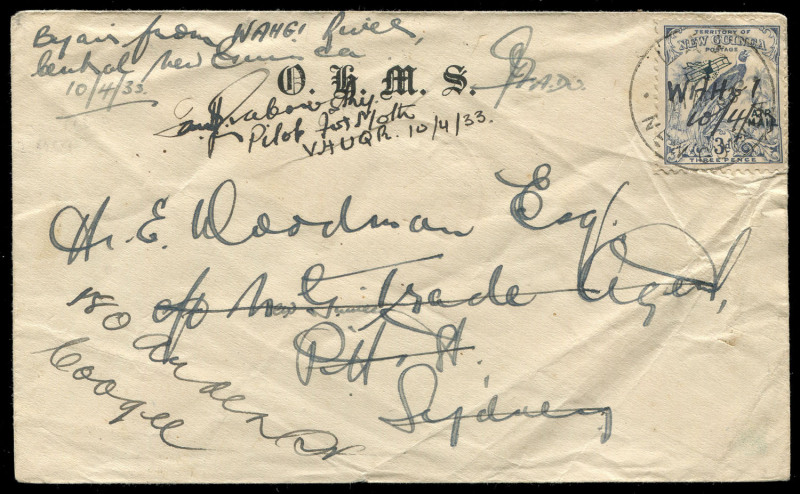 By air from WAHGI River,
Central New Guinea
10/4/33.
O. H. M. S.
ADO.
Pilot Fox Moth
VHUQR. 10/4/33.
TERRITORY OF
NEW GUINEA
POSTAGE
WAHGI
10/4/33
3d
THREE PENCE
H. E. Woodman Esq.
c/o New Guinea Trade Agent,
Pitt St.
Sydney
180 Arden St
Coogee